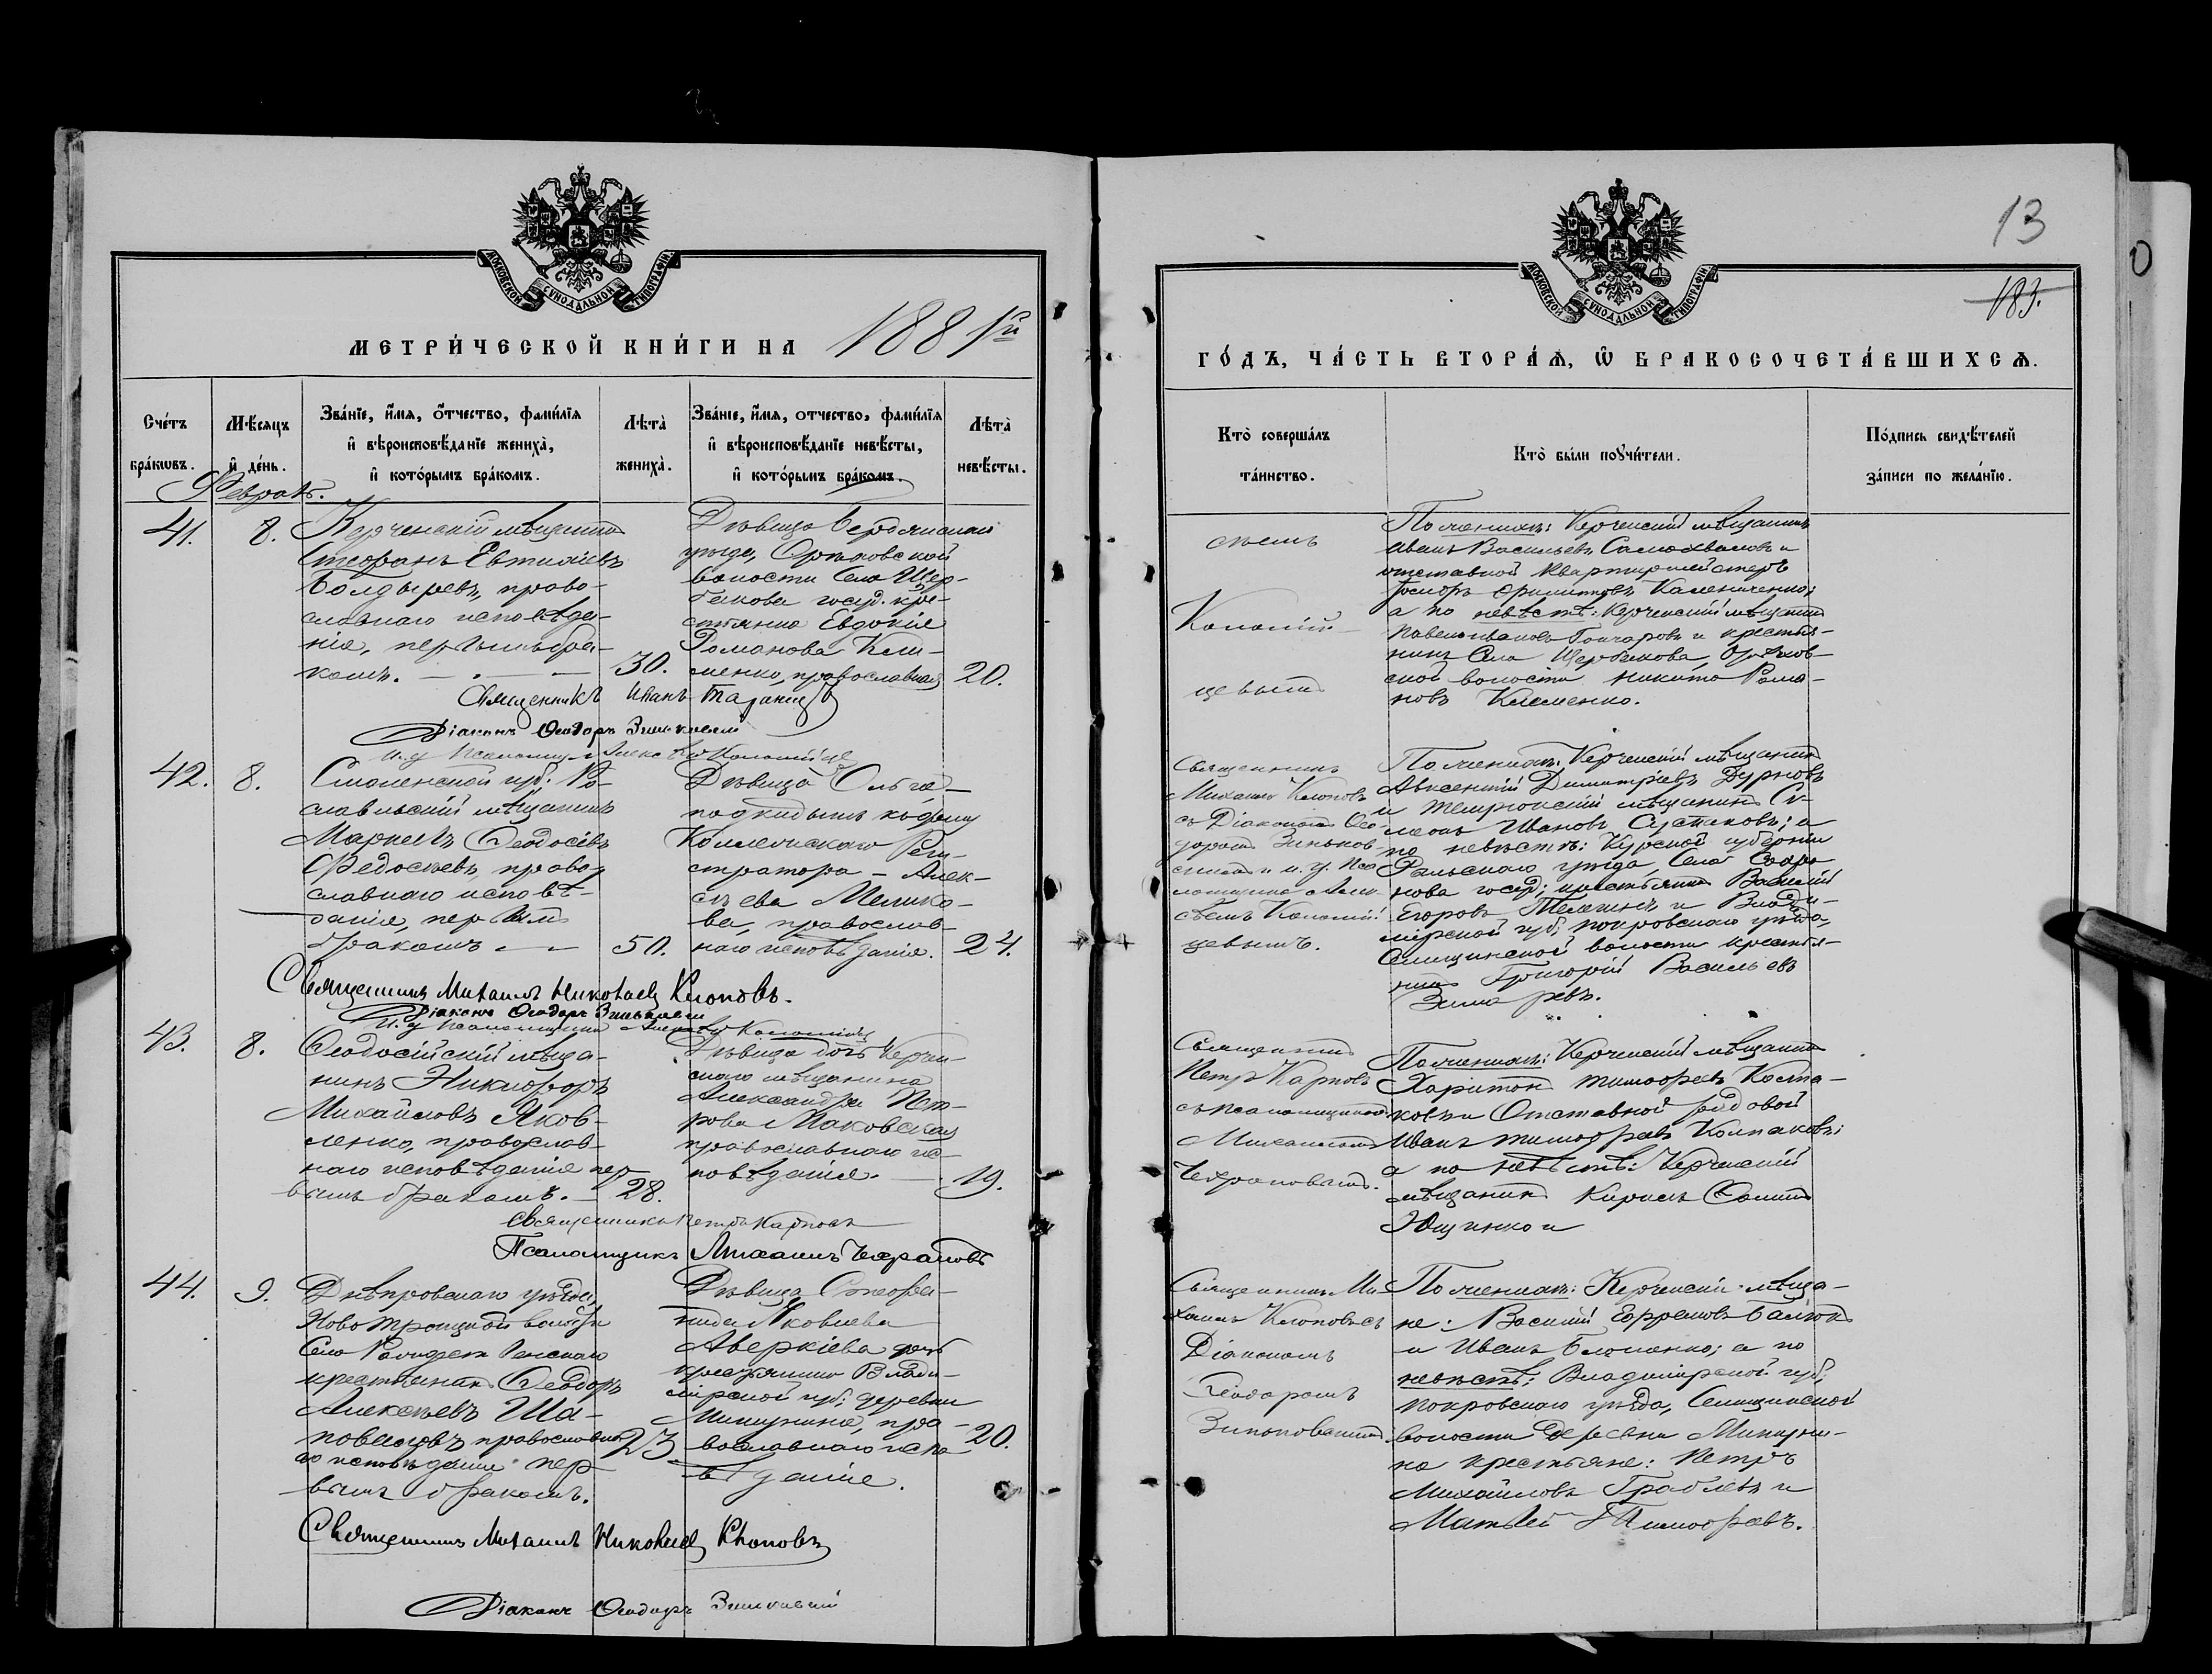 13
183.
МОСКОВСКОЙ СѴНОДАЛЬНОЙ ТИПОГРАФІИ
МОСКОВСКОЙ СѴНОДАЛЬНОЙ ТИПОГРАФІИ
МЕТРИ́ЧЕСКОЙ КНИ́ГИ НА 1881й
ГО́ДЪ, ЧА́СТЬ ВТОРА́Ѧ, Ѽ БРАКОСОЧЕТА́ВШИХСѦ.
Сче́тъ
бра́кѡвъ.
Мѣ́сяцъ
и҆ де́нь.
Зва́нїе, и҆́мя, ѻ҆́тчество, фами́лїя
и҆ вѣроисповѣ́данїе жениха̀,
и҆ кото́рымъ бра́комъ.
Лѣта̀
жениха̀.
Зва́нїе, и҆́мя, отчество, фами́лїя
и҆ вѣроисповѣ́данїе невѣ́сты,
и҆ кото́рымъ бра́комъ.
Лѣта̀
невѣ́сты.
Кто̀ соверша́лъ
та́инство.
Кто̀ бы́ли порꙋчи́тели.
По́дпись свидѣ́телей
за́писи по жела́нїю.
Феврал.
41.
8.
Керченскій мѣщанинъ
Стефанъ Евтихіевъ
Болдыревъ, право-
славнаго исповѣда-
нія, первымъ бра-
комъ.
30.
Дѣвица Бердянскаго
уѣзда, Орѣховской
волости села Щер-
бакова госуд. кре-
стьянка Евдокія
Романова Кли-
менко, православная
20.
сѣемъ
Коломій-
цевымъ
По женихѣ: Керченскій мѣщанинъ
Иванъ Васильевъ Самохваловъ и
отставной квартирмейстеръ
Калениченко;
а по невѣстѣ: Керченскій мѣщанинъ
Павелъ Ивановъ Гончаровъ и крестья-
нинъ села Щербакова, Орѣхов-
ской волости Никита Рома-
новъ Клименко.
Священникъ Иванъ Таранецъ
Діаконъ Ѳеодоръ Зиньковскій
и. д. Псаломщика Алексѣй Коломійцевъ
42.
8.
Смоленской губ. Ро-
славльскій мѣщанинъ
Маркелъ Ѳеодосіевъ
Федосѣевъ, право-
славнаго исповѣ-
данія, первымъ
бракомъ
50.
Дѣвица Ольга,
подкидышъ къ дому
Коллежскаго Реги-
стратора Алек-
сѣева Мелико-
ва, православ-
наго исповѣданія.
24.
Священникъ
Михаилъ Клоповъ
съ Діакономъ Ѳео-
доромъ Зиньков-
скимъ и и. д. Пса-
ломщика Алек-
сѣемъ Коломій-
цевымъ.
По женихѣ: Керченскій мѣщанинъ
Авксентій Димитріевъ Дурновъ
и Темрюкскій мѣщанинъ Си-
меонъ Ивановъ Сустаковъ; а
по невѣстѣ: Курской губерніи
Рыльскаго уѣзда, села
нова госуд. крестьянинъ Василій
Егоровъ Телегинъ и Влади-
мірской губ. Покровскаго уѣзда,
Селищинской волости крестья-
нинъ Григорій Васильевъ
Священникъ Михаилъ Николаевъ Клоповъ.
Діаконъ Ѳеодоръ Зиньковскій
и. д. Псаломщика Алексѣй Коломійцевъ
43.
8.
Ѳеодосійскій мѣща-
нинъ Никифоръ
Михайловъ Яков-
ленко, православ-
наго исповѣданія пер-
вымъ бракомъ.
28.
Дѣвица дочь Керчен-
скаго мѣщанина
Александра Пет-
рова Маковская
православнаго ис-
повѣданія.
19.
Священникъ
Петръ Карповъ
съ псаломщикомъ
Михаиломъ
Чехрановымъ.
По женихѣ: Керченскій мѣщанинъ
Харитонъ Тимофеевъ Коста-
ковъ и Отставной рядовой
Иванъ Тимофеевъ Колпаковъ;
а по невѣстѣ: Керченскій
мѣщанинъ Кирилъ
Ющинко и
Священникъ Петръ Карповъ
Псаломщикъ Михаилъ Чехрановъ
44.
9.
Днѣпровскаго уѣзда
Ново Троицкой волости
Село
крестьянинъ Ѳеодоръ
Алексѣевъ Ша-
поваловъ православна-
го исповѣданія пер-
вымъ бракомъ.
23
Дѣвица Стефа-
нида Яковлева
Аверкіева дочь
крестьянина Влади-
мірской губ. деревни
Мишунина, пра-
вославнаго испо-
вѣданія.
20.
Священникъ Ми-
хаилъ Клоповъ съ
Діакономъ
Ѳеодоромъ
По женихѣ: Керченскіе мѣща-
не: Василій Ефремовъ
и Иванъ а по
невѣстѣ: Владимірской губ.
Покровскаго уѣзда, Селищинской
волости деревни Мишуни-
на крестьяне: Петръ
Михайловъ Граблевъ и
Матвѣй Тимофеевъ.
Священникъ Михаилъ Николаевъ Клоповъ
Діаконъ Ѳеодоръ Зиньковскій